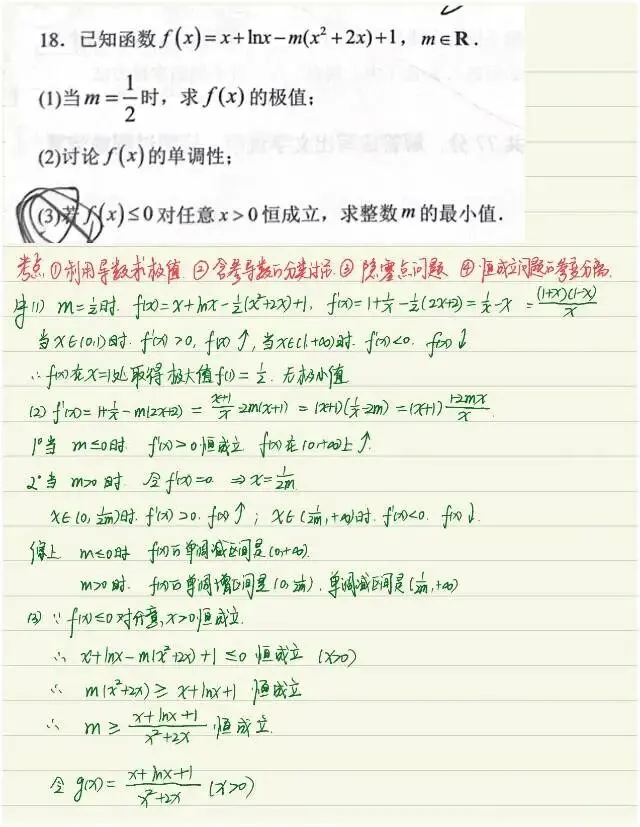 18. 已知函数 f(x)=x+lnx-m(x²+2x)+1, m∈R.
(1)当 m=1/2 时，求 f(x) 的极值；
(2)讨论 f(x) 的单调性；
(3)若 f(x)≤0 对任意 x>0 恒成立，求整数 m 的最小值.
考点 ①利用导数求极值 ②含参导数的分类讨论 ③ 隐零点问题 ④恒成立问题的参变分离
(1) m=1/2时. f(x)=x+lnx-1/2(x²+2x)+1, f'(x)=1+1/x-1/2(2x+2)=1/x-x=(1+x)(1-x)/x
当x∈(0,1)时. f'(x)>0, f(x)↑, 当x∈(1,+∞)时. f'(x)<0. f(x)↓
∴f(x)在x=1处取得极大值f(1)=1/2. 无极小值
(2) f'(x)=1+1/x-m(2x+2)=(x+1)/x-2m(x+1)=(x+1)(1/x-2m)=(x+1)(1-2mx)/x.
1°当 m≤0时 f'(x)>0恒成立 f(x)在(0,+∞)上↑.
2°当 m>0时. 令f'(x)=0 ⇒x=1/2m
x∈(0,1/2m)时. f'(x)>0. f(x)↑; x∈(1/2m,+∞)时. f'(x)<0. f(x)↓.
综上 m≤0时 f(x)的单调减区间是(0,+∞).
m>0时. f(x)的单调增区间是(0,1/2m), 单调减区间是(1/2m,+∞)
(3) ∵f(x)≤0对任意,x>0恒成立.
∴ x+lnx-m(x²+2x)+1≤0 恒成立 (x>0)
∴ m(x²+2x)≥x+lnx+1 恒成立
∴ m≥(x+lnx+1)/(x²+2x) 恒成立.
令 g(x)=(x+lnx+1)/(x²+2x) (x>0)